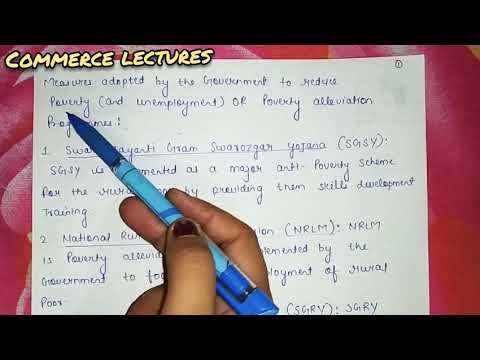 COMMERCE LECTURES
①
Measures adopted by the Government to reduce
Poverty (and unemployment) OR Poverty alleviation
Programmes:
1. Gram Swarozgar yojana (SGSY):
SGSY is as a major anti-Poverty Scheme
for the by providing them skills development
Training
2. National (NRLM): NRLM
is Poverty by the
Government to of rural
Poor.
(SGRY): SGRY